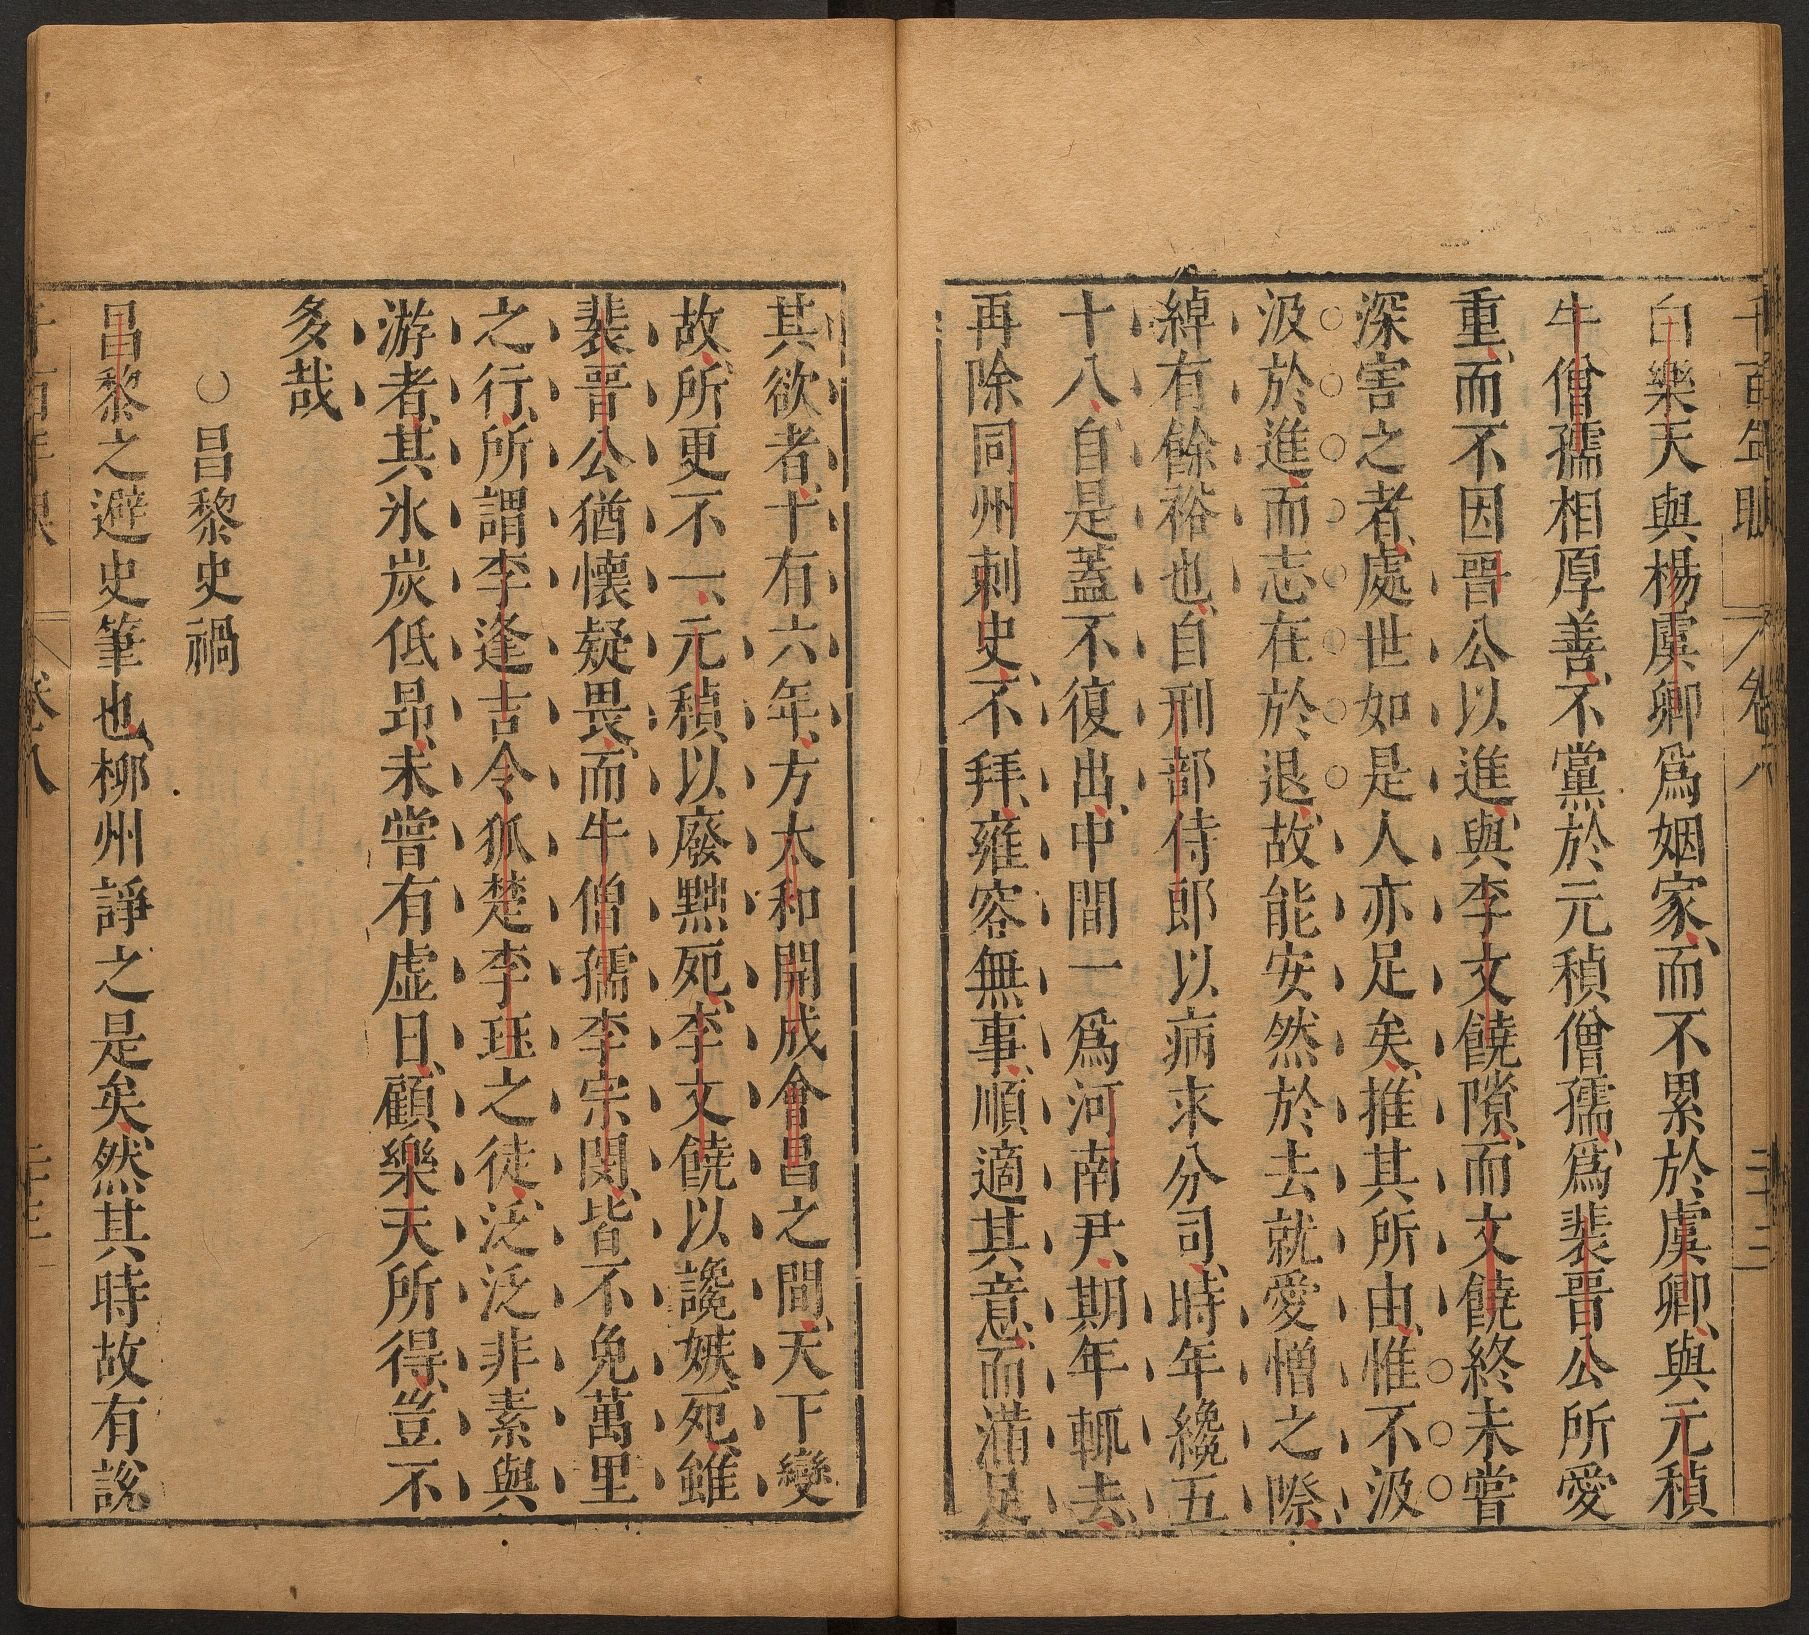 千百年眼 卷八 二十二
白樂天與楊虞卿爲姻家而不累於虞卿與元稹
牛僧孺相厚善不黨於元稹僧孺爲裴晉公所愛
重而不因晉公以進與李文饒隙而文饒終未嘗
深害之者處世如是人亦足矣推其所由惟不汲
汲於進而志在於退故能安然於去就愛憎之際
綽有餘裕也自刑部侍郎以病求分司時年纔五
十八自是蓋不復出中間一爲河南尹期年輒去
再除同州刺史不拜雍容無事順適其意而滿足
其欲者十有六年方太和開成會昌之間天下變
故所更不一元稹以廢黜死李文饒以讒嫉死雖
裴晉公猶懷疑畏而牛僧孺李宗閔皆不免萬里
之行所謂李逢吉令狐楚李珏之徒泛泛非素與
游者其氷炭低昂未嘗有虛日顧樂天所得豈不
多哉
○昌黎史禍
昌黎之避史筆也柳州諍之是矣然其時故有說
卷八